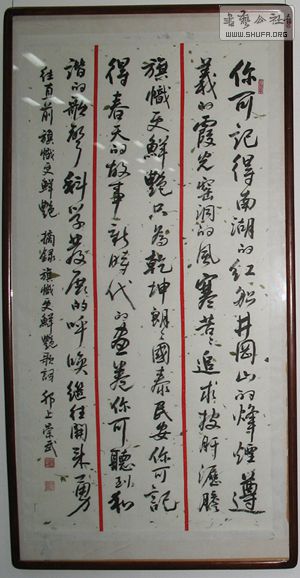 你可记得南湖的红船井冈山的烽烟遵
义的霞光窑洞的风寒苦苦追求披肝沥胆
旗帜更鲜艳只为乾坤朗朗国泰民安你可记
得春天的故事新时代的画卷你可听到和
谐的歌声科学发展的呼唤继往开来勇
往直前旗帜更鲜艳 摘录旗帜更鲜艳歌词 邗上荣武
书艺公社
WWW.SHUFA.ORG